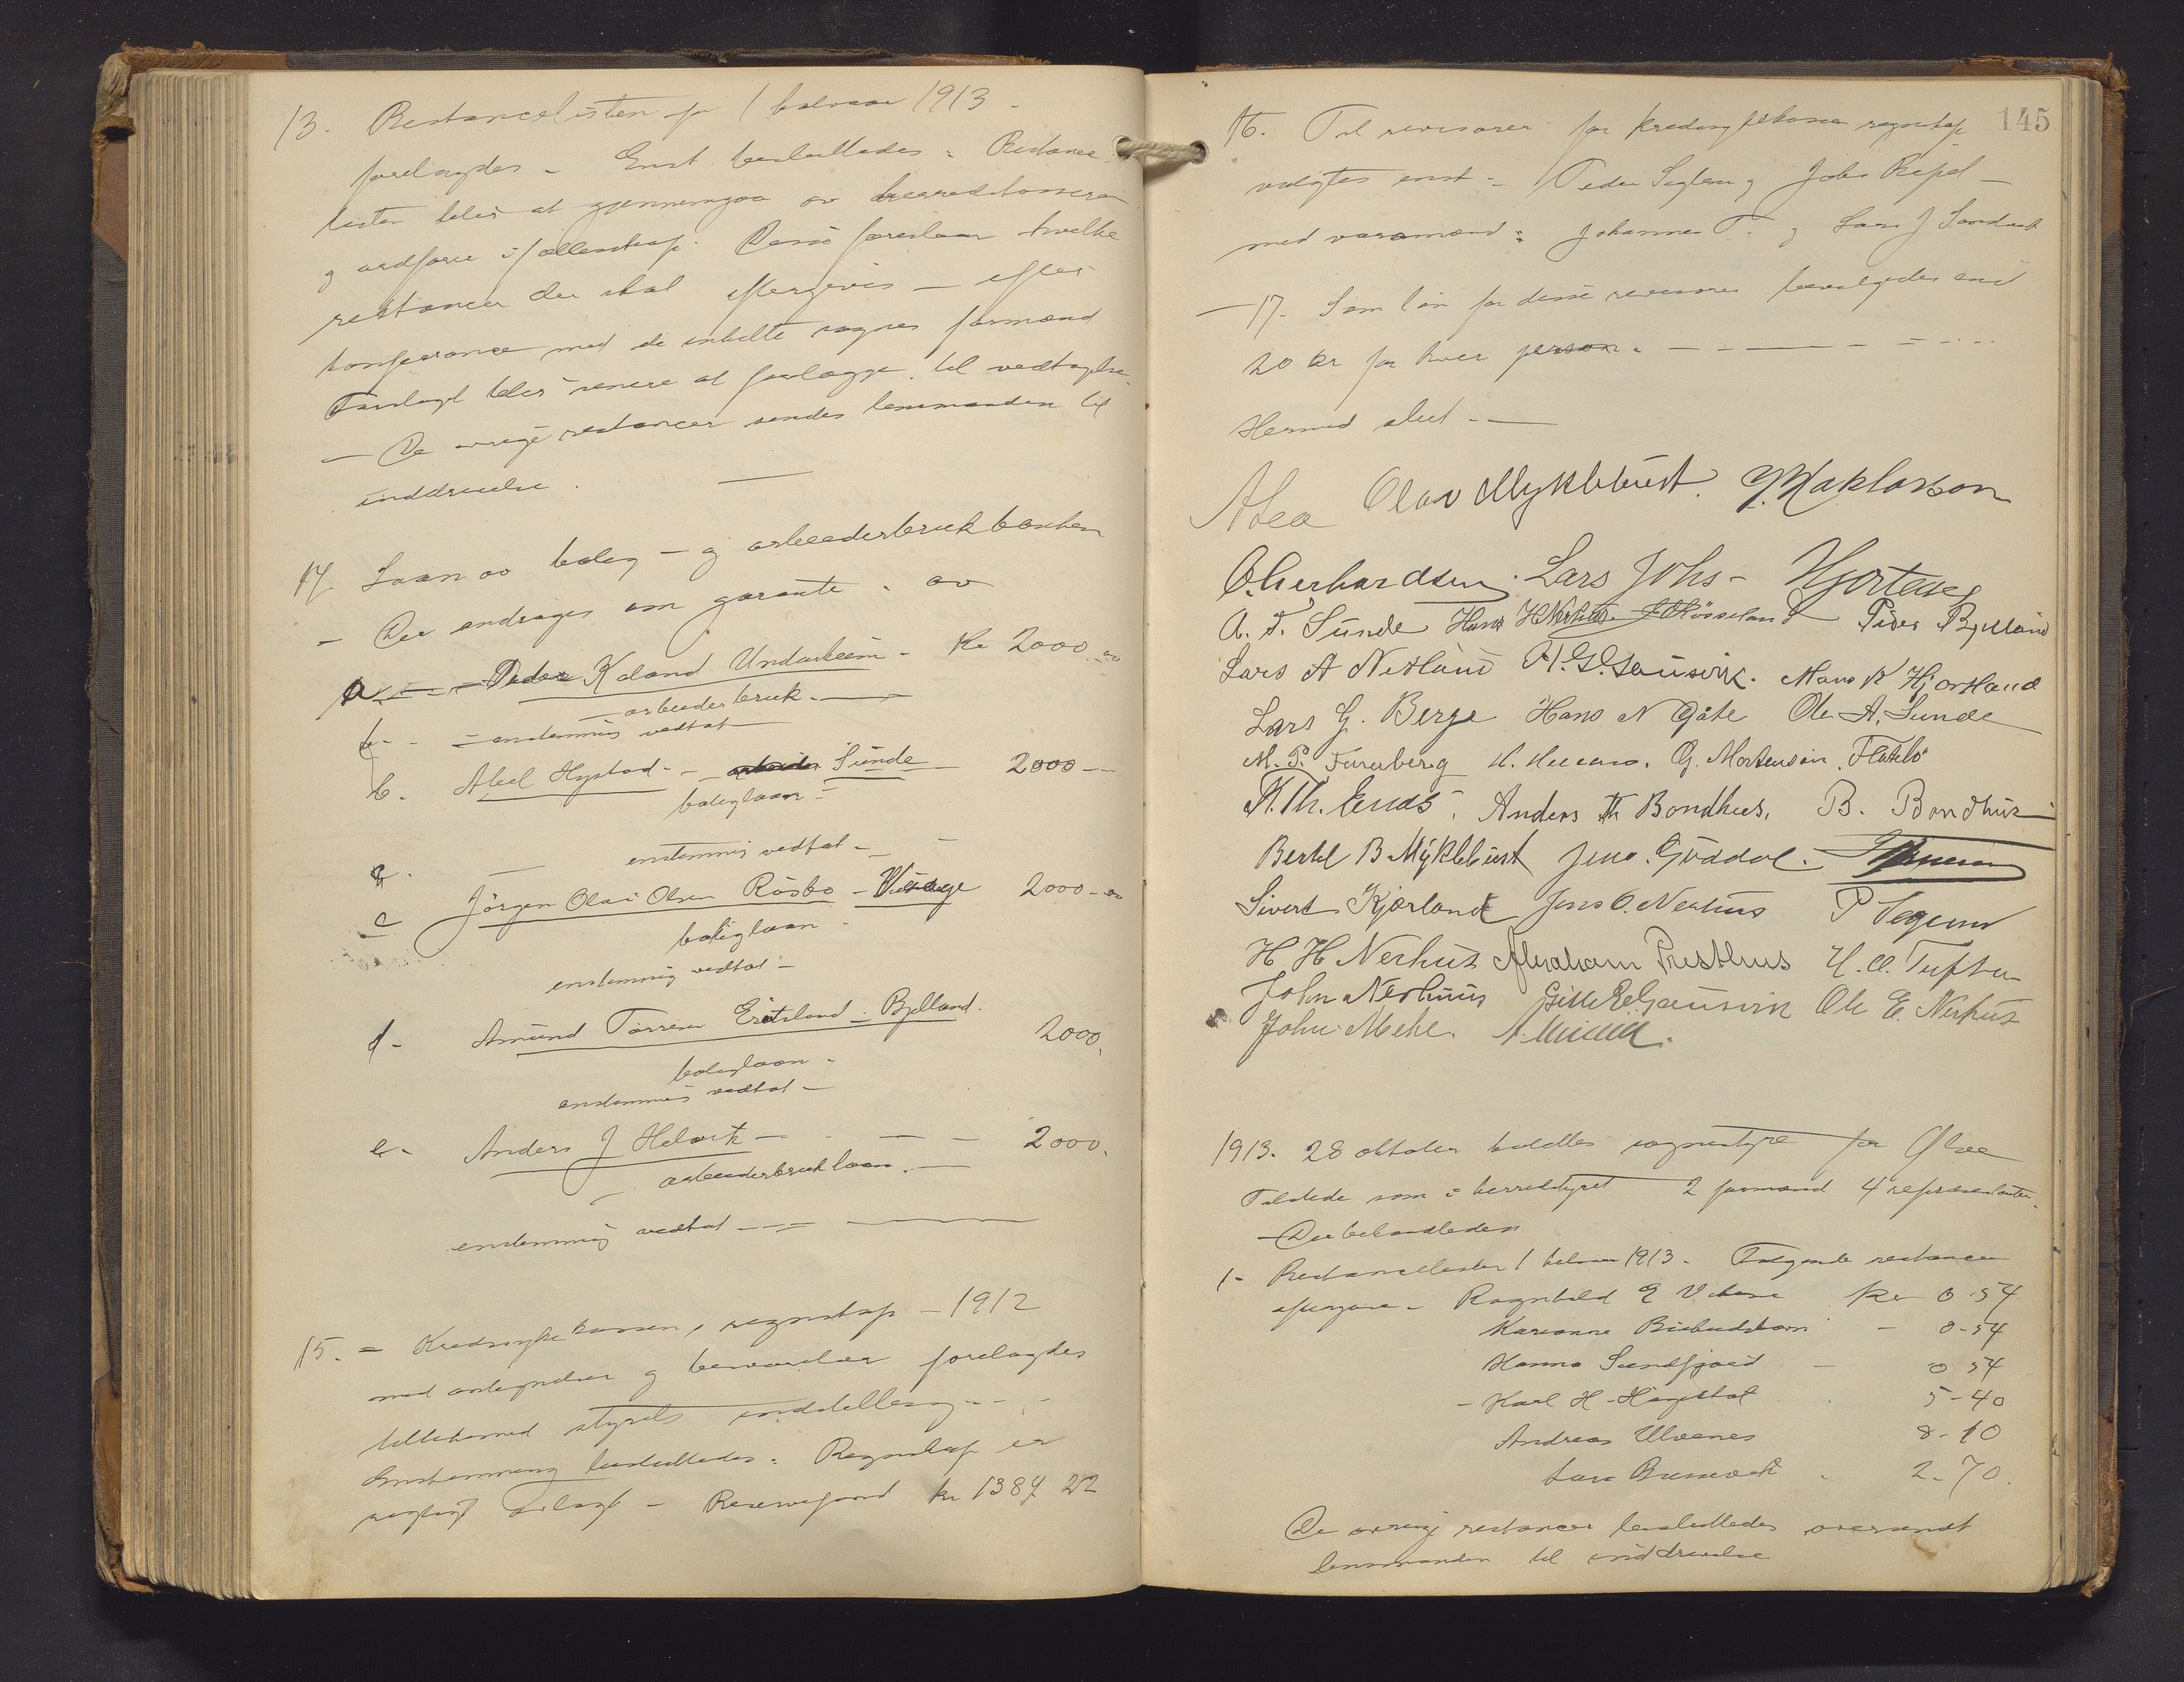 13. Restancelisten for 1 halvaar 1913 -
forelagdes - Enst besluttedes: Restance
listen blir at gjennemgaa av herredskasserer
og ordfører i fællesskap. Disse foreslaar hvilke
restancer der skal eftergives - efter
konferance med de enkelte sognes formænd
Forslaget blir senere at forlægge til vedtagelse.
- De øvrige restancer sendes lensmanden til
inddrivelse. -
14. Laan av bolig - og arbeiderbrukbanken
- Der androges om garanti av
a - Peder Kaland Undarheim - Kr 2000.00
arbeiderbruk -
enstemmig vedtat
b. Abel Hystad - Sunde - 2000 -
boliglaan -
enstemmig vedtat -
c Jørgen Olai Olsen Røsbo - 2000 - 00
boliglaan
enstemmig vedtat -
d - Amund Tørresen Eritsland - Bjelland. 2000,
boliglaan -
enstemmig vedtat -
e - Anders J Helvik - 2000.
arbeiderbruk laan. -
enstemmig vedtat -
15. - Kredssykekassens regnskap - 1912
med antegnelser og besvarelser forelagdes
tillikemed styrets indstilling -
Enstemmig besluttedes: Regnskap er
rigtigt avlagt - Reservefond kr 1387 22
145
16. Til revisorer for kredssykekassens regnskap
valgtes enst - Peder og Johs
med varamænd: Johannes T. og Lars J Sandvik
- 17. Som løn for disse revisorer bevilgedes enst
20 kr for hver person -
Hermed slut -
Olav Myklebust.
O. Gerhardsen. Lars Johs - Hjorteseg
A. T. Sunde Hans H Nerhus. Røsseland Peder Bjelland
Lars A Netland H. G. Gausvik. Mons K Hjortland
Lars G. Berge Hans N Gåte Ole A. Sunde
M. P. Furuberg G. Mortensen Flatebø
K. Th. Enes, Anders Th Bondhus, B. Bondhus
Bertel B Myklebust Jens. Guddal.
Sivert Kjærland Jens O. Nerhus P
H H Nerhus Abraham Presthus
John Nerhuus Gitle E. Gausvik Ole E. Nerhus
John Mehl.
1913. 28 oktober holdtes sognestyre for Ølve
Tilstede som i herredstyret 2 formænd 4 repræsentanter.
- Der behandledes
1 - Restancelisten 1 halvaar 1913. Følgende restancer
eftergives - Ragnhild kr 0 54
Karianne - 0 - 54
Hanna Sandfjord - 0 54
- Karl H - Høgestøl 5 - 40
Andreas Ulvenes 8 - 10
Lars 2 - 70.
De øvrige restancer besluttedes oversendt
lensmanden til inddrivelse